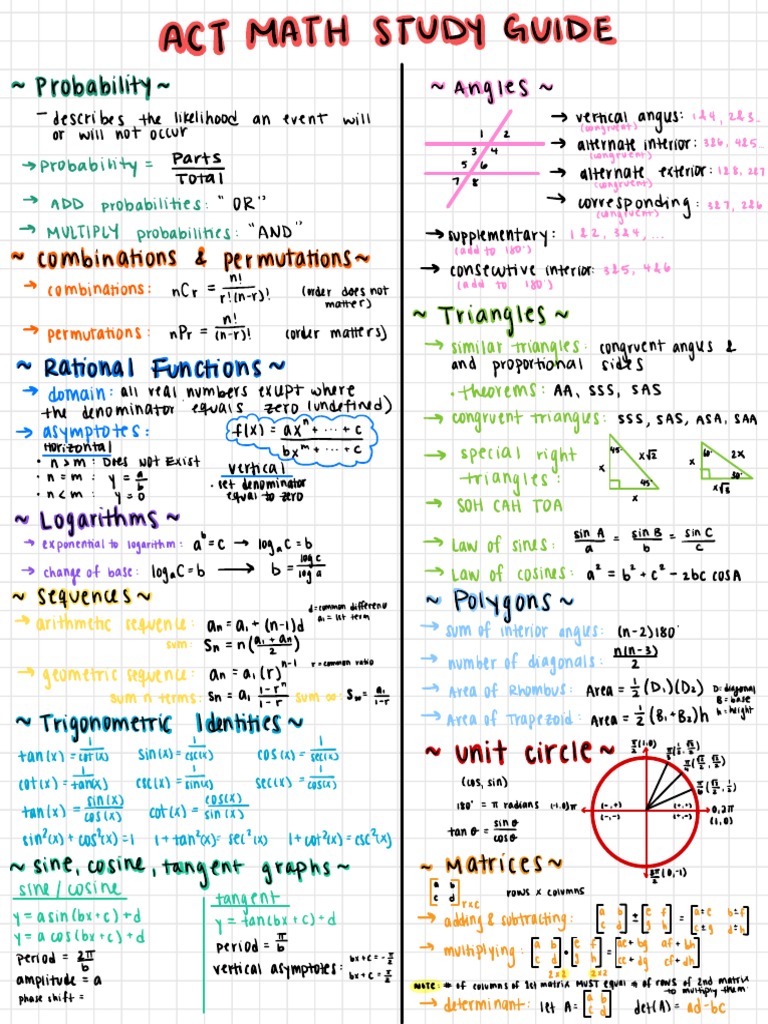 ACT MATH STUDY GUIDE
~ Probability ~
- describes the likelihood an event will
or will not occur
→ Probability = Parts / Total
→ ADD probabilities: "OR"
→ MULTIPLY probabilities: "AND"
~ Combinations & permutations ~
→ combinations: nCr = n! / r!(n-r)! (order does not
matter)
→ permutations: nPr = n! / (n-r)! (order matters)
~ Rational Functions ~
→ domain: all real numbers except where
the denominator equals zero (undefined)
→ asymptotes: f(x) = axⁿ + ... + c / bxᵐ + ... + c
Horizontal
• n > m : DOES NOT EXIST
• n = m : y = a/b
• n < m : y = 0
vertical
• set denominator
equal to zero
~ Logarithms ~
→ exponential to logarithm: aᵇ = c → logₐC = b
→ change of base: logₐC = b → b = log c / log a
~ Sequences ~
d = common difference
a₁ = 1st term
→ arithmetic sequence: aₙ = a₁ + (n-1)d
sum: Sₙ = n(a₁ + aₙ / 2)
→ geometric sequence: aₙ = a₁(r)ⁿ⁻¹ r = common ratio
sum n terms: Sₙ = a₁ 1-rⁿ / 1-r sum ∞: S∞ = a₁ / 1-r
~ Trigonometric Identities ~
tan(x) = 1/cot(x) sin(x) = 1/csc(x) cos(x) = 1/sec(x)
cot(x) = 1/tan(x) csc(x) = 1/sin(x) sec(x) = 1/cos(x)
tan(x) = sin(x)/cos(x) cot(x) = cos(x)/sin(x)
sin²(x) + cos²(x) = 1 1 + tan²(x) = sec²(x) 1 + cot²(x) = csc²(x)
~ sine, cosine, tangent graphs ~
sine / cosine
y = a sin(bx + c) + d
y = a cos(bx + c) + d
period = 2π/b
amplitude = a
phase shift =
tangent
y = tan(bx + c) + d
period = π/b
vertical asymptotes: bx + c = -π/2
bx + c = π/2
~ Angles ~
1 2
3 4
5 6
7 8
→ vertical angles: 1&4, 2&3...
(congruent)
→ alternate interior: 3&6, 4&5...
(congruent)
→ alternate exterior: 1&8, 2&7
(congruent)
→ corresponding: 3&7, 2&6
(congruent)
→ supplementary: 1&2, 3&4, ...
(add to 180°)
→ consecutive interior: 3&5, 4&6
(add to 180°)
~ Triangles ~
→ similar triangles: congruent angles &
and proportional sides
• theorems: AA, SSS, SAS
→ congruent triangles: SSS, SAS, ASA, SAA
→ special right
triangles:
45° x√2 x 45° x
60° 2x x 30° x√3
→ SOH CAH TOA
→ Law of sines: sin A / a = sin B / b = sin C / c
→ Law of cosines: a² = b² + c² - 2bc cosA
~ Polygons ~
→ sum of interior angles: (n-2)180°
→ number of diagonals: n(n-3) / 2
→ Area of Rhombus: Area = 1/2 (D₁)(D₂)
→ Area of Trapezoid: Area = 1/2 (B₁+B₂)h
D = diagonal
B = base
h = height
~ unit circle ~
(cos, sin)
180° = π radians
tan θ = sin θ / cos θ
(-1,0) π
(-,+) (+,+)
(-,-) (+,-)
0, 2π
(1,0)
π/2 (1,0)
π/3 (1/2, √3/2)
π/4 (√2/2, √2/2)
π/6 (√3/2, 1/2)
3π/2 (0,-1)
~ Matrices ~
[a b / c d] r×c rows x columns
→ adding & subtracting: [a b / c d] ± [e f / g h] = [a±e b±f / c±g d±h]
→ multiplying: [a b / c d] • [e f / g h] = [ae+bg af+bh / ce+dg cf+dh]
2×2 2×2
NOTE: # of columns of 1st matrix MUST equal # of rows of 2nd matrix
to multiply them
→ determinant: let A = [a b / c d] det(A) = ad-bc